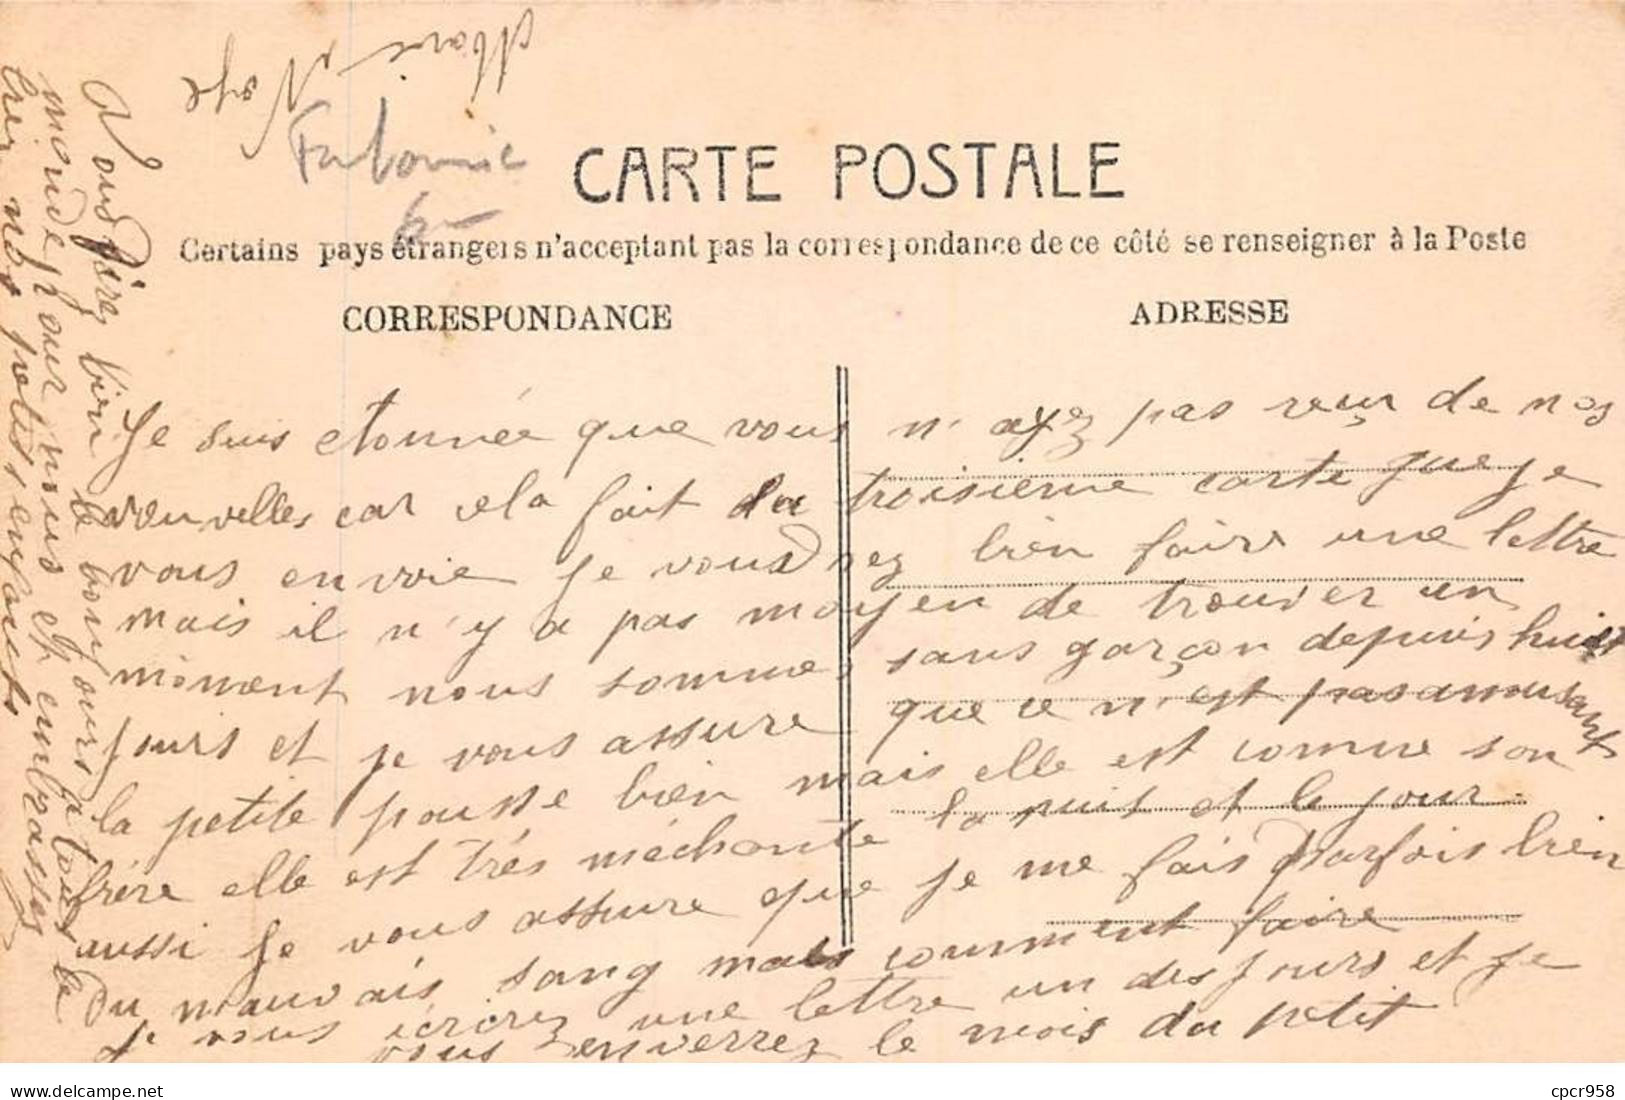 CARTE POSTALE
Certains pays étrangers n'acceptant pas la correspondance de ce côté se renseigner à la Poste
CORRESPONDANCE
ADRESSE
Je suis etonnée que vous n'ayez pas reçu de nos
nouvelles car cela fait la troisième carte que je
vous envoie je voudrez bien faire une lettre
mais il n'y a pas moyen de trouver un
moment nous sommes sans garçon depuis huit
jours et je vous assure que ce n'est pas amusant
la petite pousse bien mais elle est comme son
frère elle est très méchante la nuit et le jour
aussi je vous assure que je me fais parfois bien
du mauvais sang mais comment faire
je vous écrirez une lettre un des jours et je
vous enverrez le mois du petit
Vous direz bien le bonjours a tous le
monde pour nous et embrasses
bien nos petits enfants
Marie Noye
6-
cpcr958